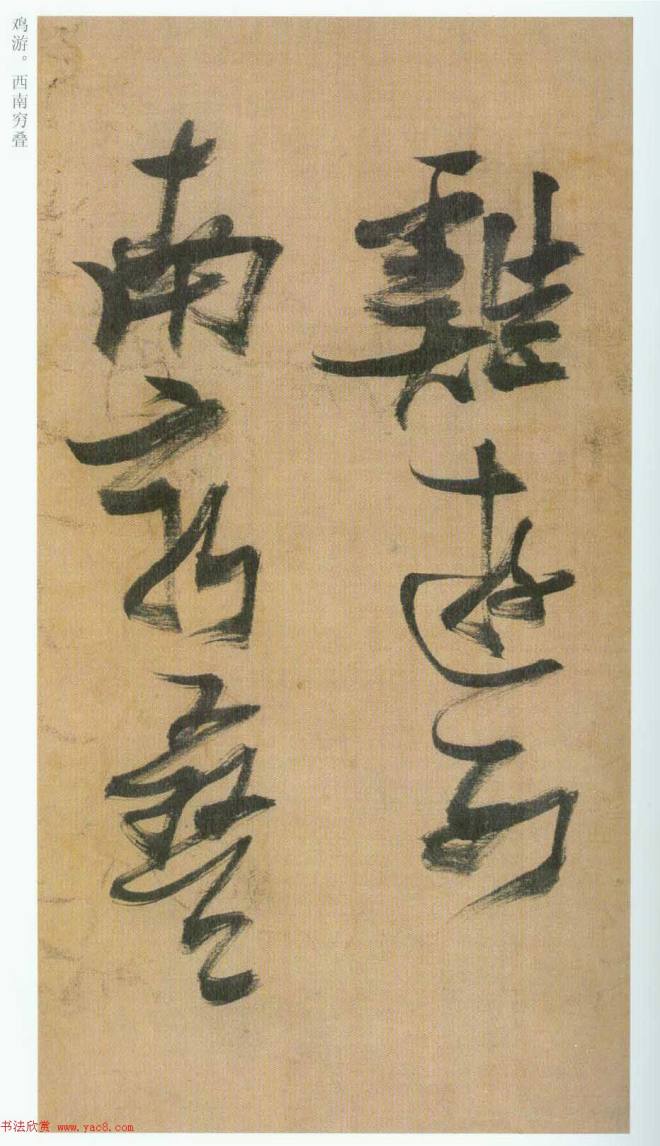 鸡游。西南穷叠
雞遊西
南窮疊
书法欣赏 www.yac8.com